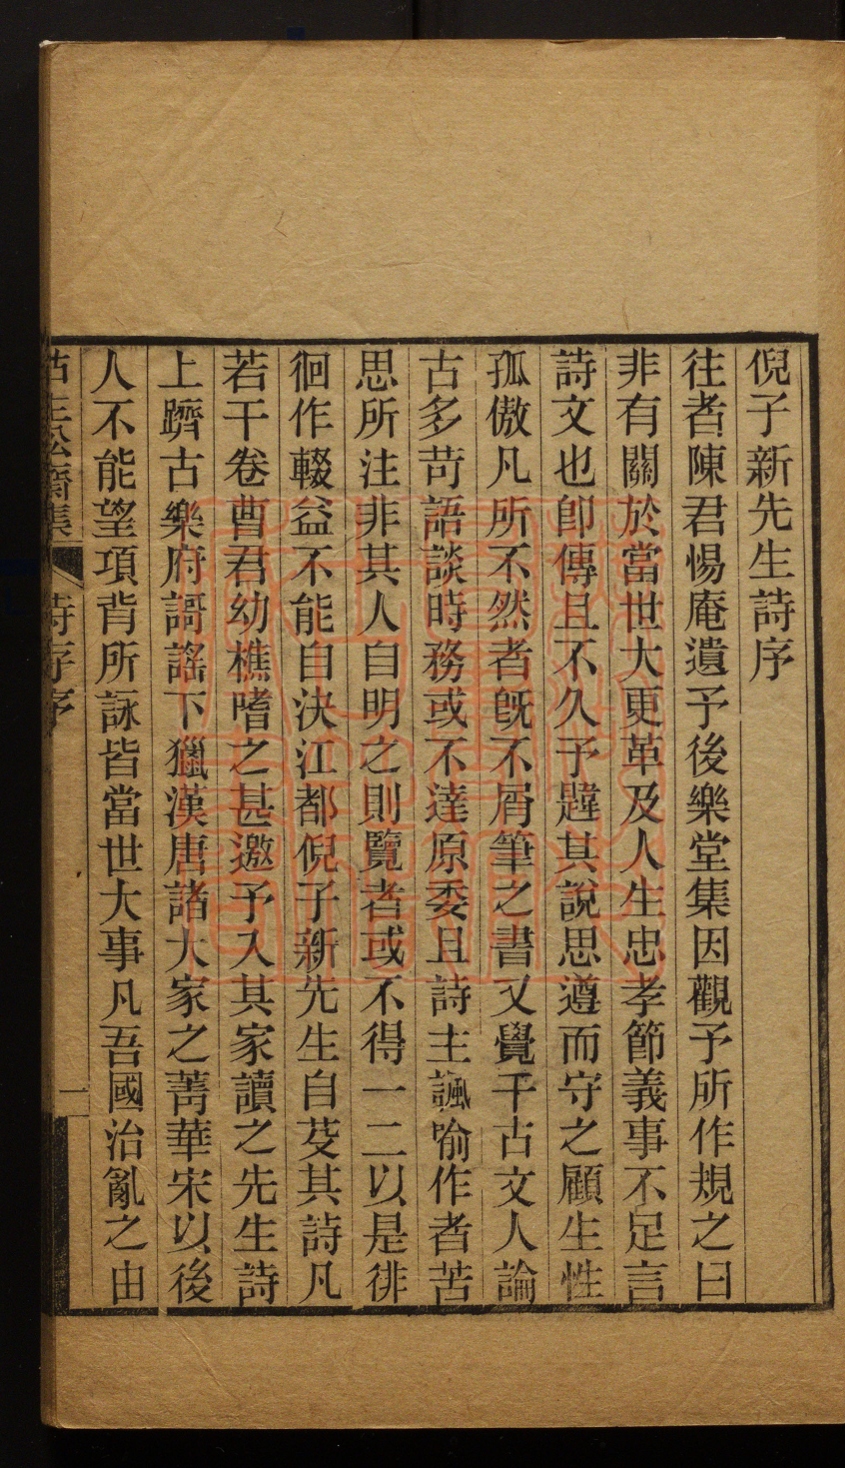 倪子新先生詩序
往者陳君惕庵遺予後樂堂集因觀予所作規之曰
非有關於當世大更革及人生忠孝節義事不足言
詩文也卽傳且不久予韙其說思遵而守之顧生性
孤傲凡所不然者旣不屑筆之書又覺千古文人論
古多苛語談時務或不達原委且詩主諷喻作者苦
思所注非其人自明之則覽者或不得一二以是徘
徊作輟益不能自決江都倪子新先生自芟其詩凡
若干卷曹君幼樵嗜之甚邀予入其家讀之先生詩
上躋古樂府謌謠下獵漢唐諸大家之菁華宋以後
人不能望項背所詠皆當世大事凡吾國治亂之由
齋集 詩存序 一